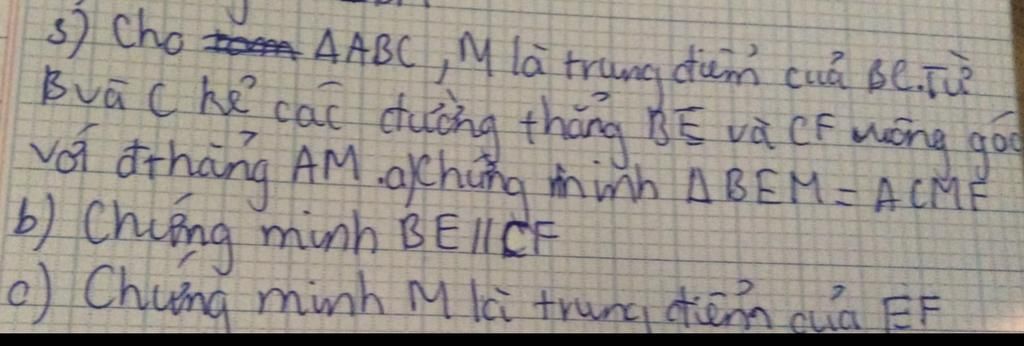 3) Cho ΔABC, M là trung điểm của BC. Từ
B và C kẻ các đường thẳng BE và CF vuông góc
với đthẳng AM. a) Chứng minh ΔBEM = ΔCMF
b) Chứng minh BE // CF
c) Chứng minh M là trung điểm của EF